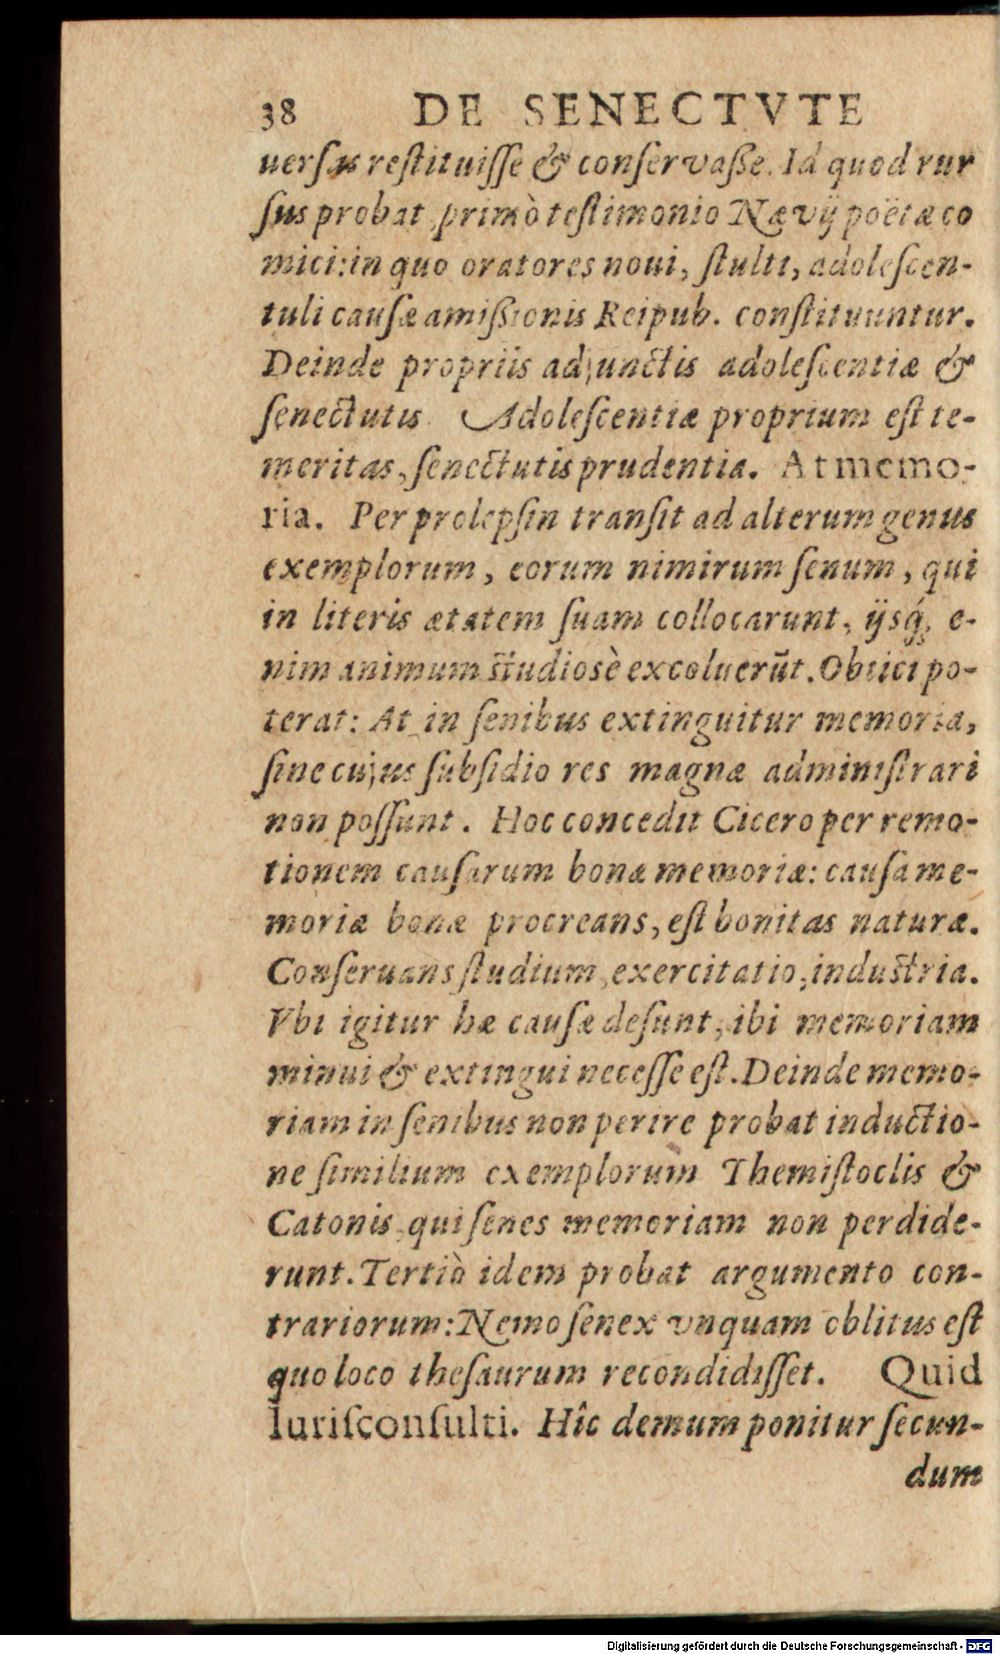 38 DE SENECTVTE
uersu restituisse & conservasse. Id quod rur
sus probat, primò testimonio Nævij poëtæ co
mici: in quo oratores noui, stulti, adolescen-
tuli causæ amissionis Reipub. constituuntur.
Deinde propriis adjunctis adolescentiæ &
senectutis. Adolescentiæ proprium est te-
meritas, senectutis prudentia. At memo-
ria. Per prolepsin transit ad alterum genus
exemplorum, eorum nimirum senum, qui
in literis ætatem suam collocarunt, ijsq́; e-
nim animum studiosè excoluerũt. Obiici po-
terat: At in senibus extinguitur memoria,
sine cujus subsidio res magnæ administrari
non possunt. Hoc concedit Cicero per remo-
tionem causarum bonæ memoriæ: causa me-
moriæ bonæ procreans, est bonitas naturæ.
Conseruans studium, exercitatio, industria.
Vbi igitur hæ causæ desunt, ibi memoriam
minui & extingui necesse est. Deinde memo-
riam in senibus non perire probat inductio-
ne similium exemplorum Themistoclis &
Catonis, qui senes memoriam non perdide-
runt. Tertiò idem probat argumento con-
trariorum: Nemo senex vnquam oblitus est
quo loco thesaurum recondidisset. Quid
Iurisconsulti. Hîc demum ponitur secun-
dum
Digitalisierung gefördert durch die Deutsche Forschungsgemeinschaft - DFG